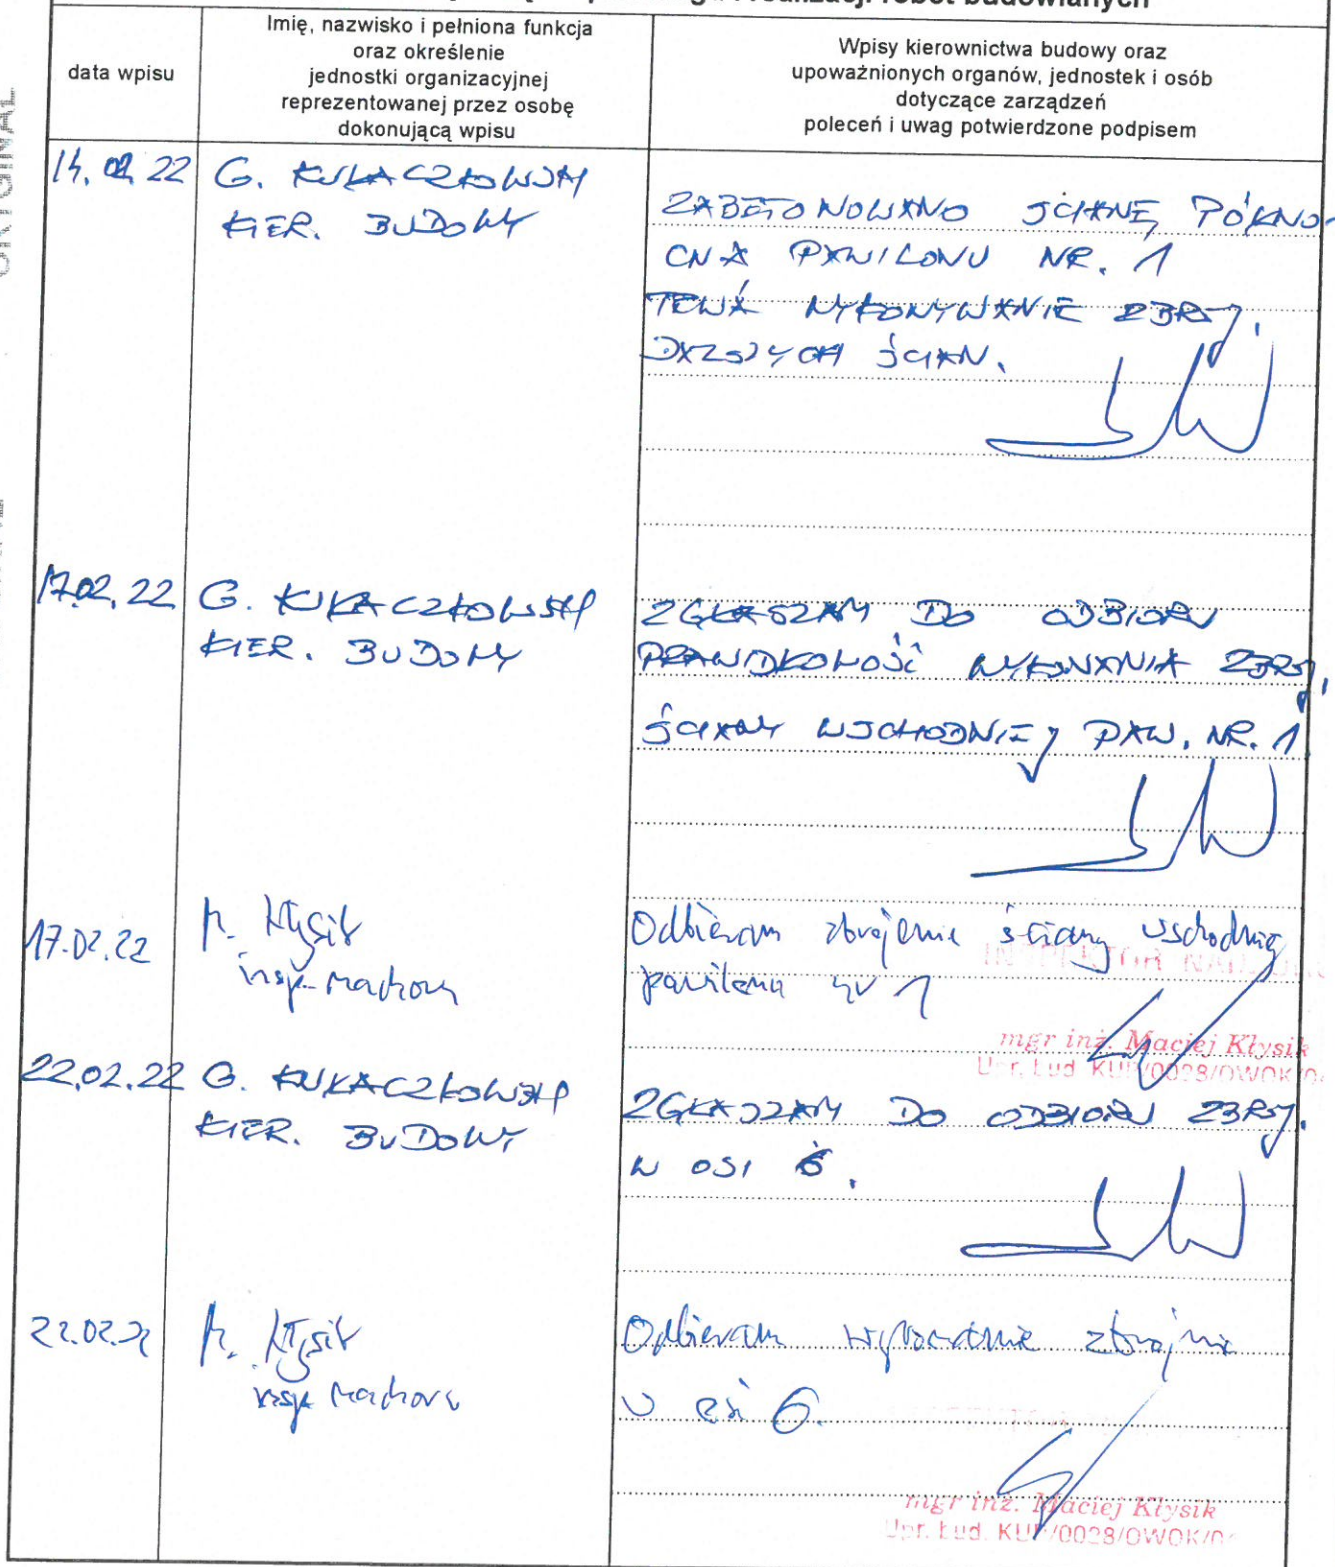 realizacji robót budowlanych
data wpisu
Imię, nazwisko i pełniona funkcja
oraz określenie
jednostki organizacyjnej
reprezentowanej przez osobę
dokonującą wpisu
Wpisy kierownictwa budowy oraz
upoważnionych organów, jednostek i osób
dotyczące zarządzeń
poleceń i uwag potwierdzone podpisem
ORYGINAŁ
14.02.22
G. KUKACZKOWSKI
KIER. BUDOWY
ZABETONOWANO ŚCIANĘ PÓŁNO-
CNĄ PAWILONU NR. 1
TRWA WYKONYWANIE ZBROJ.
DALSZYCH ŚCIAN.
17.02.22
G. KUKACZKOWSKI
KIER. BUDOWY
ZGŁASZAM DO ODBIORU
PRAWIDŁOWOŚĆ WYKONANIA ZBROJ.
ŚCIANY WSCHODNIEJ PAW. NR. 1
17.02.22
M. Kłysik
insp.
Odbieram zbrojenie ściany wschodniej
pawilonu nr 1
INSPEKTOR
mgr inż. Maciej Kłysik
Upr. bud. KUP/0028/OWOK/0
22.02.22
G. KUKACZKOWSKI
KIER. BUDOWY
ZGŁASZAM DO ODBIORU ZBROJ.
W OSI 6.
22.02.22
M. Kłysik
insp.
Odbieram zbrojenie
w osi 6.
mgr inż. Maciej Kłysik
Upr. bud. KUP/0028/OWOK/0